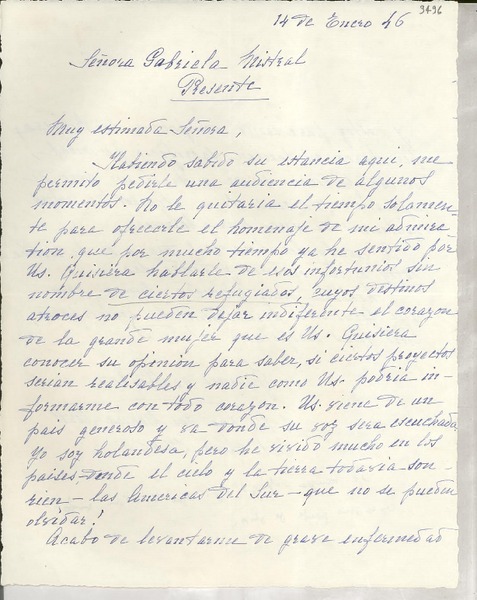 3496
14 de Enero 46
Señora Gabriela Mistral
Presente
Muy estimada Señora,
Habiendo sabido su estancia aqui, me
permito pedirle una audiencia de algunos
momentos. No le quitaria el tiempo solamen-
te para ofrecerle el homenaje de mi admira-
tion, que por mucho tiempo ya he sentido por
Us. Quisiera hablarle de esos infortunios sin
nombre de ciertos refugiados, cuyos destinos
atroces no pueden dejar indiferente el corazon
de la grande mujer que es Us. Quisiera
conocer su opinión para saber, si ciertos proyectos
serian realisables y nadie como Us. podria in-
formarme con todo corazon. Us. viene de un
pais generoso y va donde su voz sera escuchada.
Yo soy holandesa, pero he vivido mucho en los
paises donde el cielo y la tierra todavia son-
rien - las Americas del Sur - que no se pueden
olvidar!
Acabo de levantarme de grave enfermedad